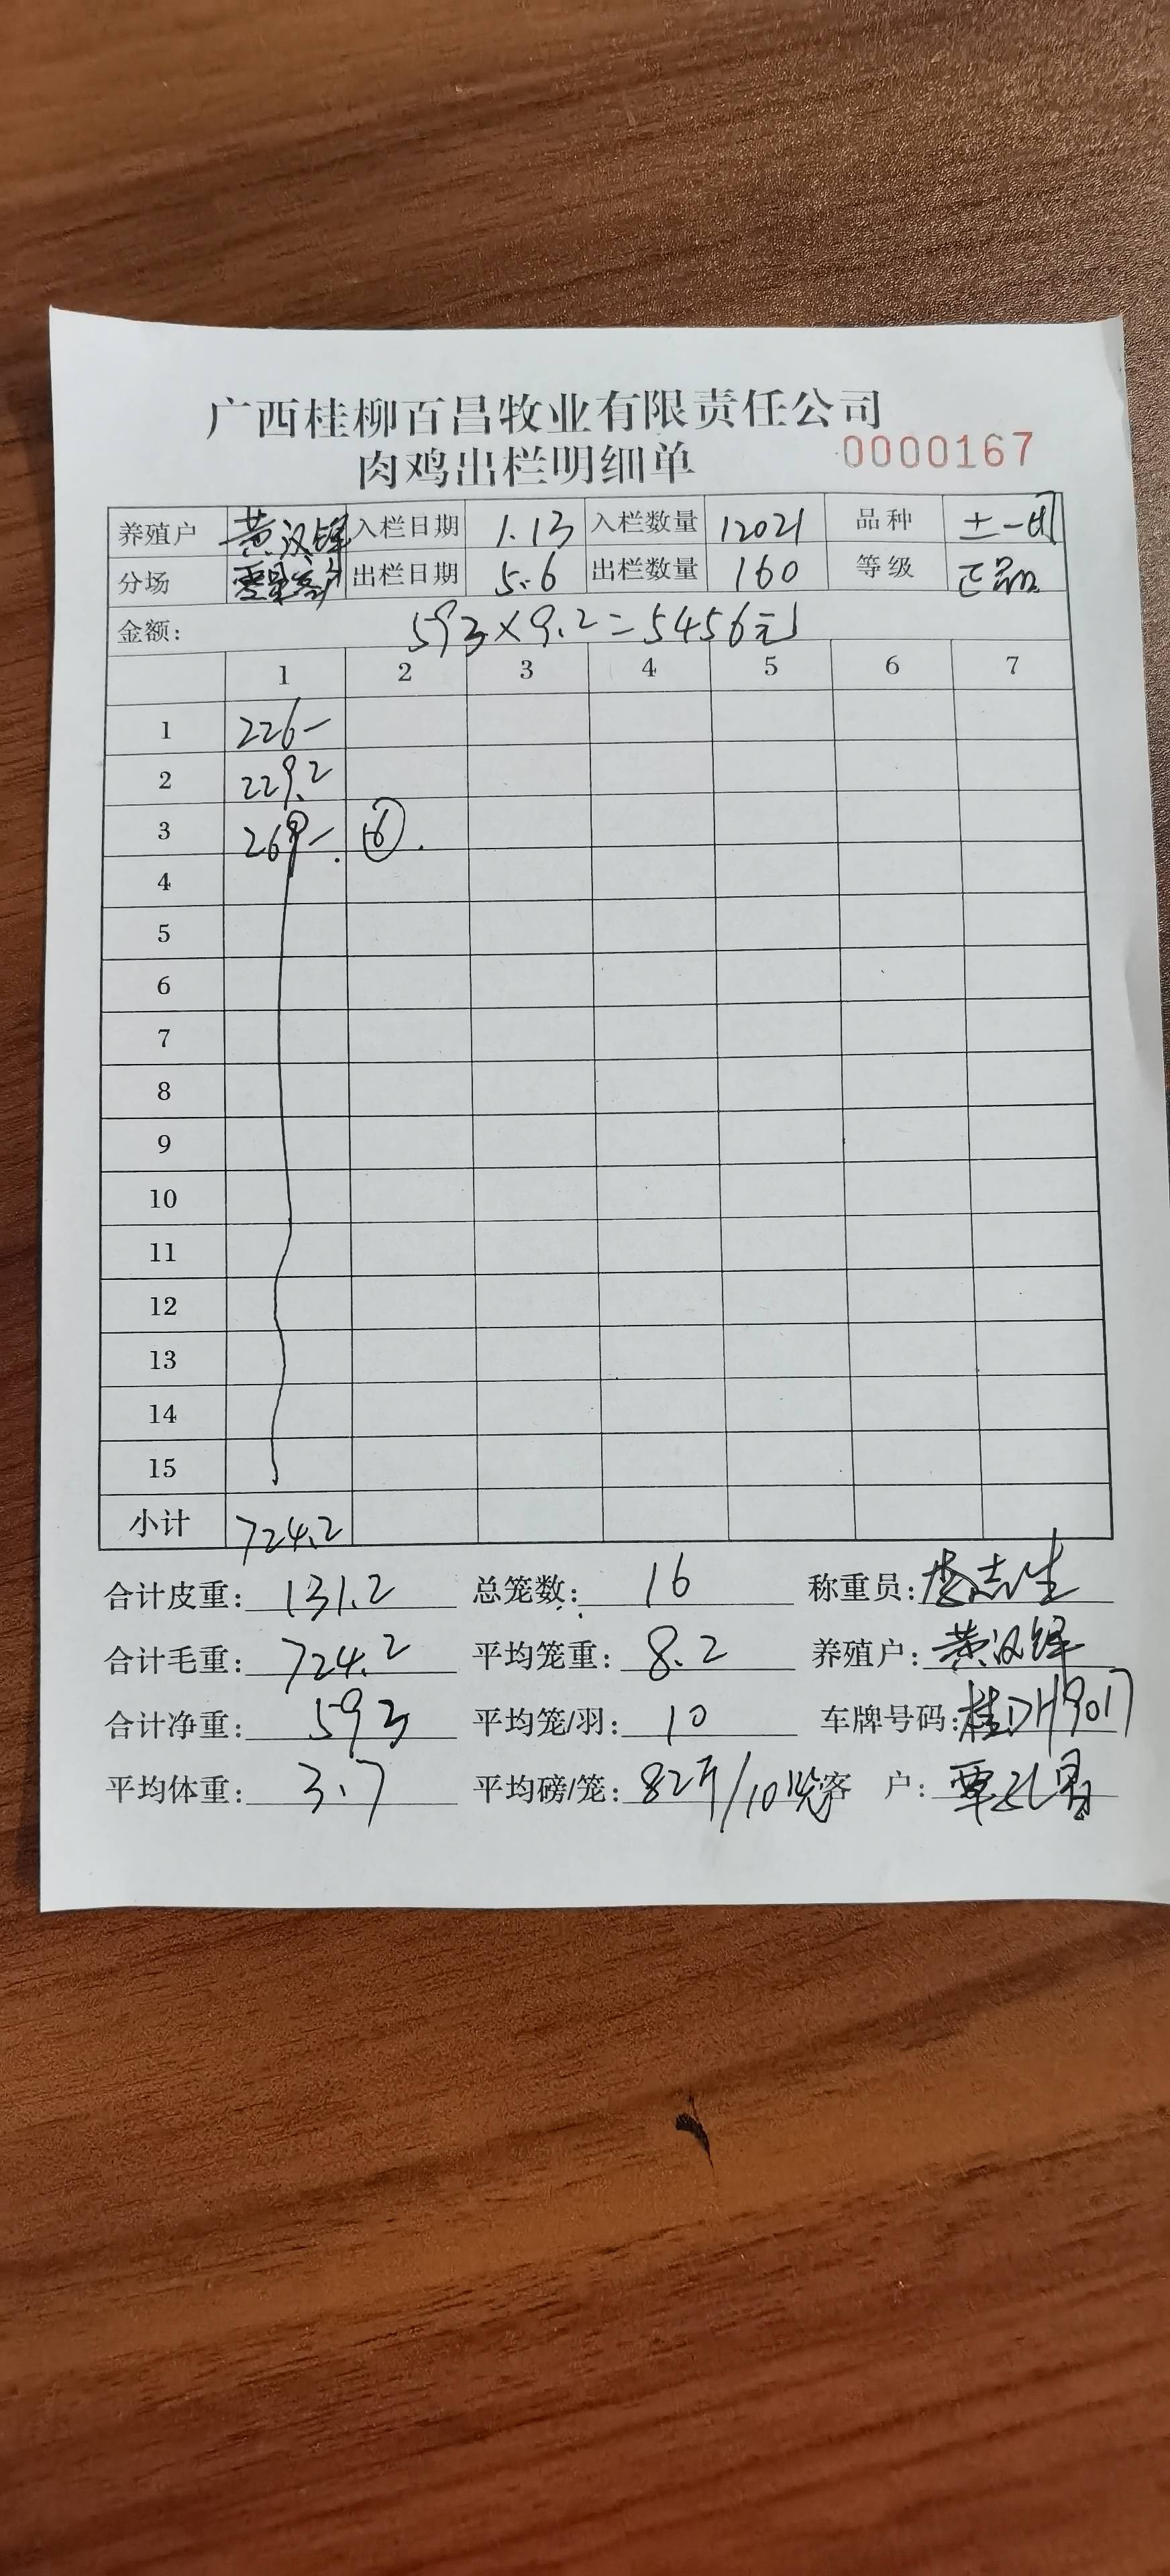 广西桂柳百昌牧业有限责任公司
肉鸡出栏明细单 0000167
养殖户 黄汉锋 入栏日期 1.13 入栏数量 12021 品种 土一
分场 出栏日期 5.6 出栏数量 160 等级 正品
金额: 593×9.2=5456元
1 2 3 4 5 6 7
1 226-
2 229.2
3 269-. ⑥.
4
5
6
7
8
9
10
11
12
13
14
15
小计 724.2
合计皮重: 131.2 总笼数: 16 称重员: 志生
合计毛重: 724.2 平均笼重: 8.2 养殖户: 黄汉锋
合计净重: 593 平均笼/羽: 10 车牌号码: 桂DH9017
平均体重: 3.7 平均磅/笼: 82斤/10 客 户: 覃